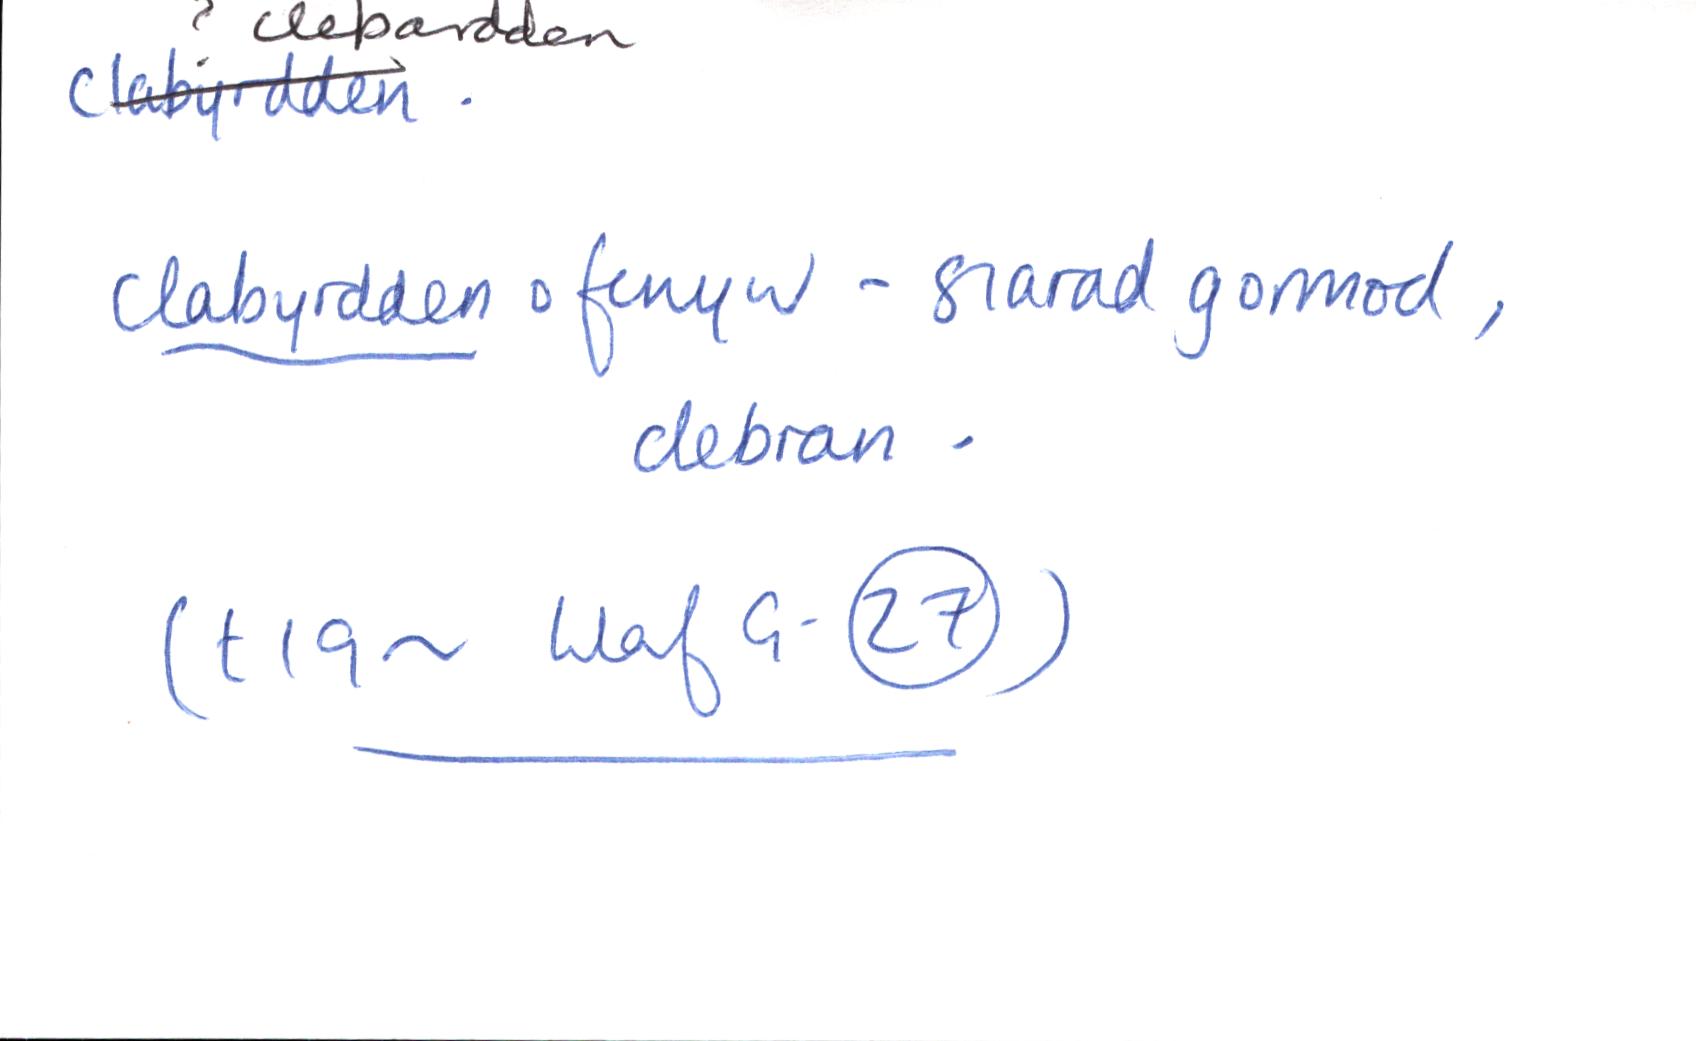 ? clebardden
clabyrdden.
clabyrdden o fenyw - siarad gormod,
clebran.
(t19~ Llaf G-27)